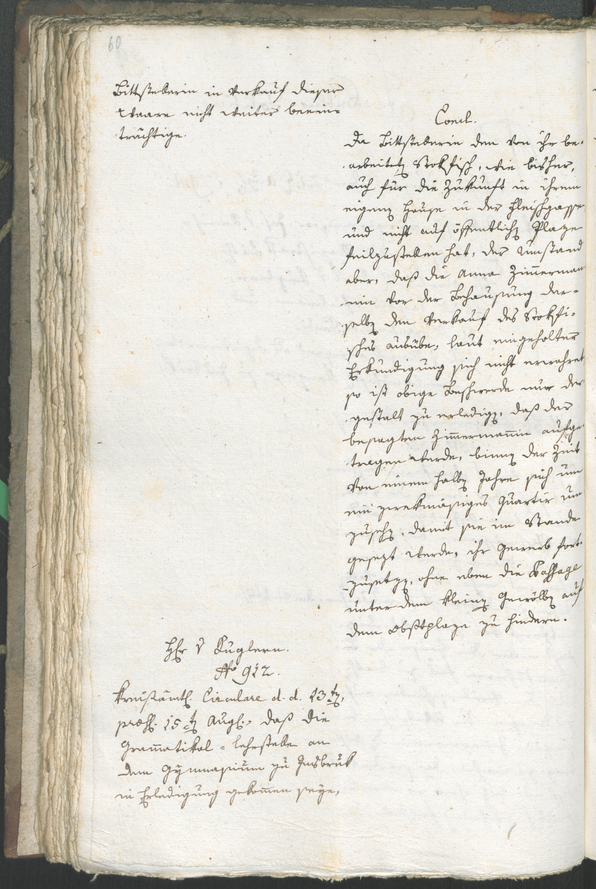 60
Bittstellerin in Verkauf dieser
Waare nicht weiter beein-
trächtige.
Concl.
Da Bittstellerin den von ihr be-
arbeiteten Stokfisch, wie bisher,
auch für die Zukunft in ihrem
eigenen Hause in der Fleischgasse
und nicht auf öffentlichen Plaze
feilzustellen hat, der Umstand
aber, daß die Anna Zimmerman-
nin vor der Behausung der-
selben den Verkauf des Stokfi-
sches ausübe, laut eingeholter
Erkundigung sich nicht erwahret
so ist obige Beschwerde nur der-
gestalt zu erledigen, daß der
besagten Zimmermannin aufge-
tragen werde, binnen der Zeit
von einem halben Jahre sich um
ein zwekmäsiges Quartir um-
zusehen, damit sie im Stande
gesezt werde, ihr Gewerb fort-
zusetzen, ohne eben die Passage
unter dem kleinen Gewölben auf
dem Obstplaze zu hindern.
Hr v Kuglern.
No 912.
Kreisämtl. Circulare d. d. 13ten,
praes. 15ten Augl., daß die
Grammatikal-Lehrstelle an
dem Gymnasium zu Insbruk
in Erledigung gekommen seye,